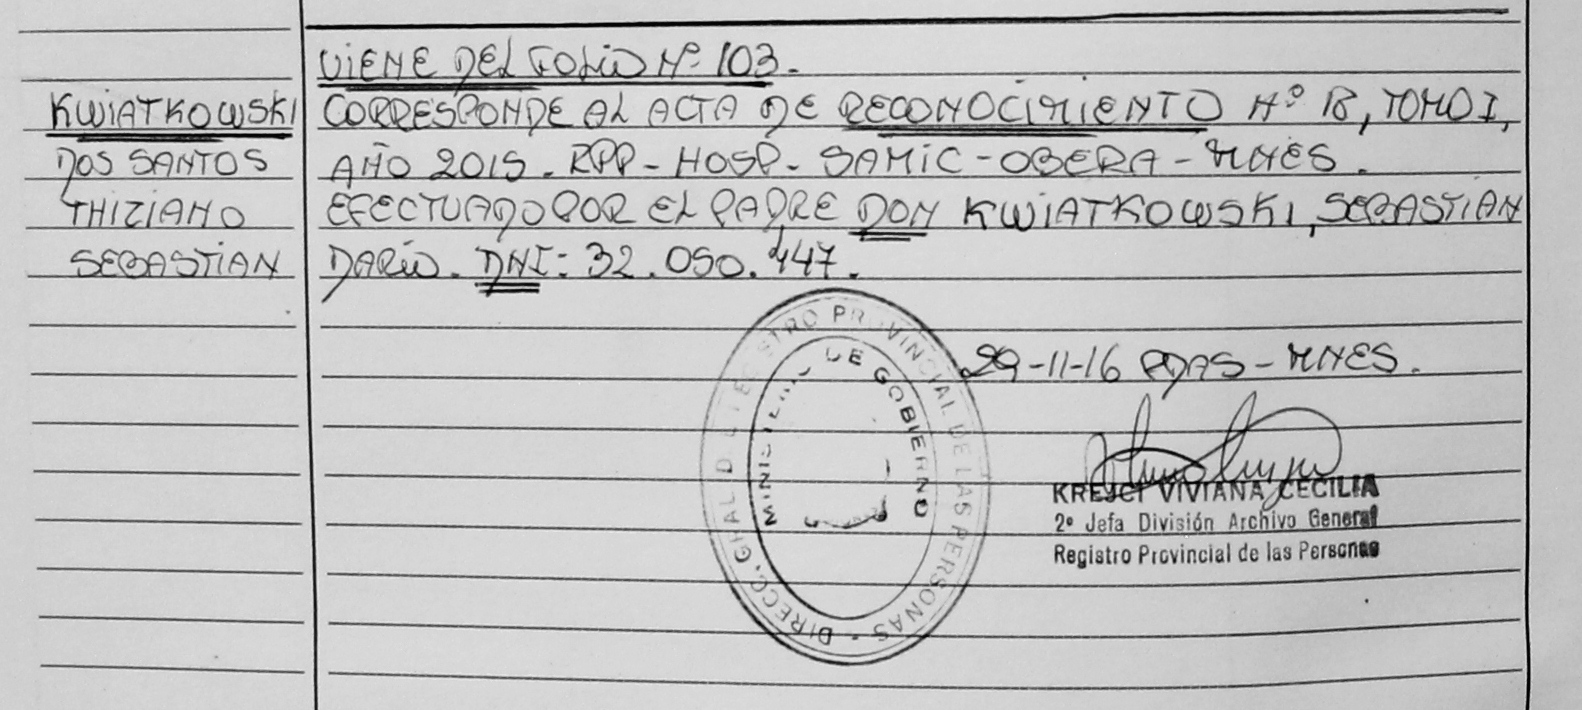 VIENE DEL FOLIO Nº 103.
KWIATKOWSKI
DOS SANTOS
THIZIANO
SEBASTIAN
CORRESPONDE AL ACTA DE RECONOCIMIENTO Nº 18, TOMO I,
AÑO 2015. RPP - HOSP - SAMIC - OBERA - MNES.
EFECTUADO POR EL PADRE DON KWIATKOWSKI, SEBASTIAN
DARIO. DNI: 32.050.447.
DIRECC. GRAL. DEL REGISTRO PROVINCIAL DE LAS PERSONAS -
MINISTERIO DE GOBIERNO
29-11-16 PDAS - MNES.
KREJCI VIVIANA CECILIA
2º Jefa División Archivo General
Registro Provincial de las Personas